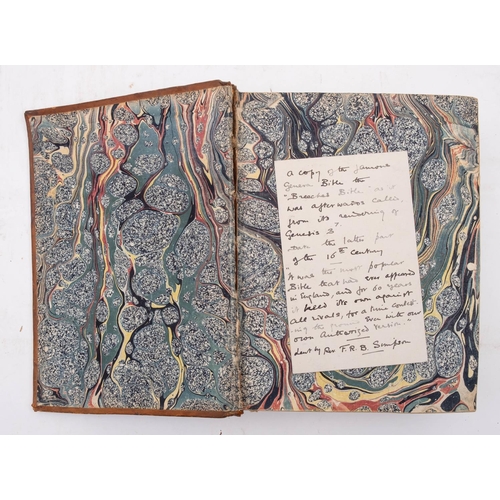 A copy of the famous
Geneva Bible the
"Breeches Bible" as it
was afterwards called,
from its rendering of
Genesis 3
7
the latter part
of the 16th Century
It was the most popular
Bible that had ever appeared
in England, and for 60 years
it held its own against
all rivals, for a time contest-
ing the ground Even with our
own Authorized Version."
Lent by Rev F.R.B. Simpson